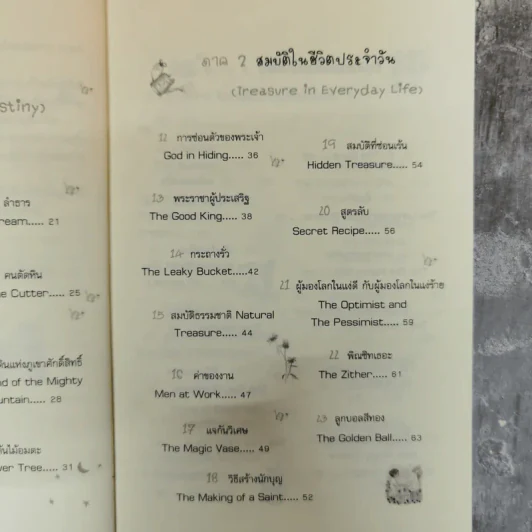 stiny)
ลำธาร
ream..... 21
คนตัดหิน
e Cutter..... 25
นแห่งภูเขาศักดิ์สิทธิ์
d of the Mighty
untain..... 28
นไม้อมตะ
ver Tree..... 31
ภาค 2 สมบัติในชีวิตประจำวัน
(Treasure in Everyday Life)
12 การซ่อนตัวของพระเจ้า
God in Hiding..... 36
13 พระราชาผู้ประเสริฐ
The Good King..... 38
14 กระถางรั่ว
The Leaky Bucket.....42
15 สมบัติธรรมชาติ Natural
Treasure..... 44
16 ค่าของงาน
Men at Work..... 47
17 แจกันวิเศษ
The Magic Vase..... 49
18 วิธีสร้างนักบุญ
The Making of a Saint..... 52
19 สมบัติที่ซ่อนเร้น
Hidden Treasure..... 54
20 สูตรลับ
Secret Recipe..... 56
21 ผู้มองโลกในแง่ดี กับผู้มองโลกในแง่ร้าย
The Optimist and
The Pessimist..... 59
22 พิณซิทเธอะ
The Zither..... 61
23 ลูกบอลสีทอง
The Golden Ball..... 63